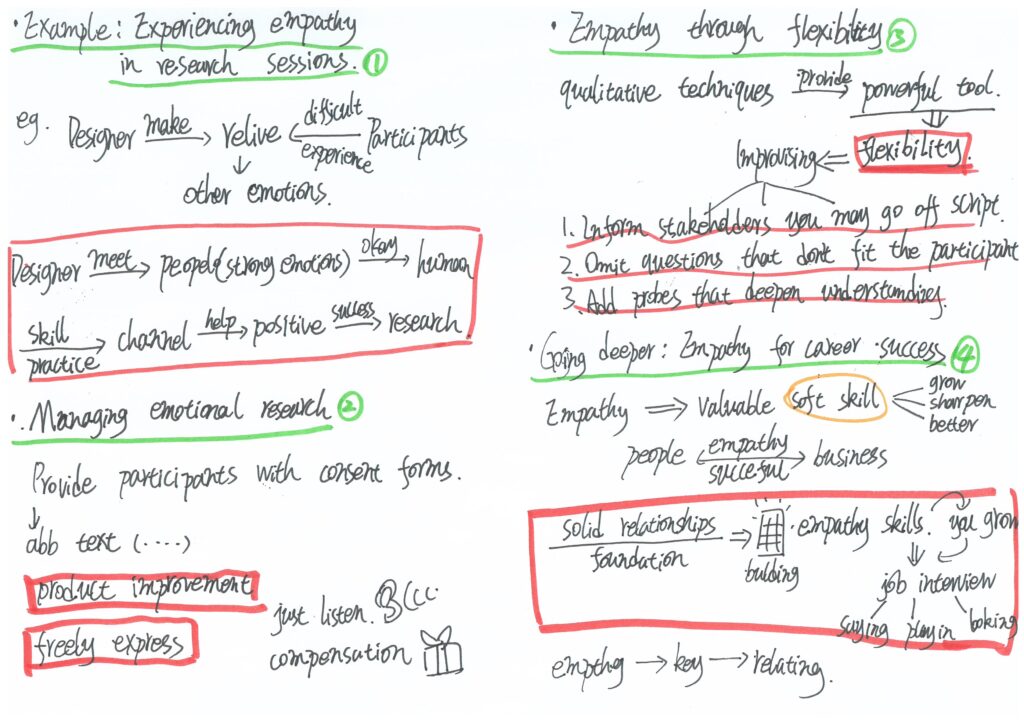 · Example: Experiencing empathy
in research sessions. ①
eg. Designer make → relive ← difficult experience Participants
↓
other emotions.
Designer meet → people (strong emotions) okay → human
skill practice → channel help → positive success → research
· Managing emotional research ②
Provide participants with consent forms.
↓
abb text (····)
product improvement
freely express
just listen.
compensation
· Empathy through flexibility ③
qualitative techniques provide → powerful tool.
⇓
Improvising ⇐ flexibility.
1. Inform stakeholders you may go off script.
2. Omit questions that don't fit the participant
3. Add probes that deepen understandings.
· Going deeper: Empathy for career success ④
Empathy ⇒ valuable soft skill
grow
sharpen
better
people ← empathy succesful → business
solid relationships
foundation
⇒ bulding
· empathy skills. you grow
⇓
job interview
saying playin
empthy → key → relating.